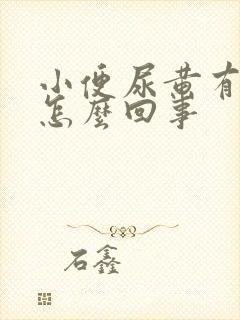 小便尿黄有
怎麼回事
石鑫